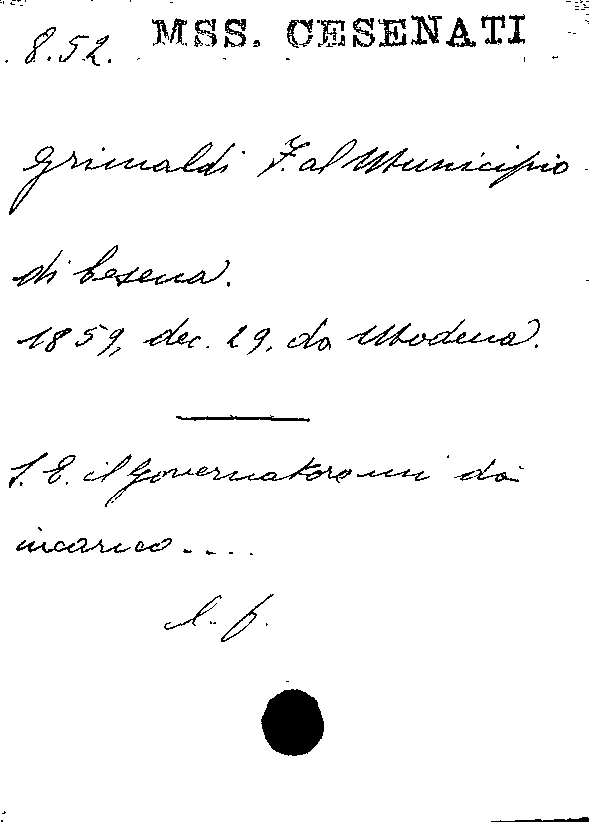 8.52. MSS. CESENATI
Grimaldi F. al Municipio
di Cesena.
1859, dec. 29, da Modena.
S. E. il Governatore mi dà
incarico....
l. f.